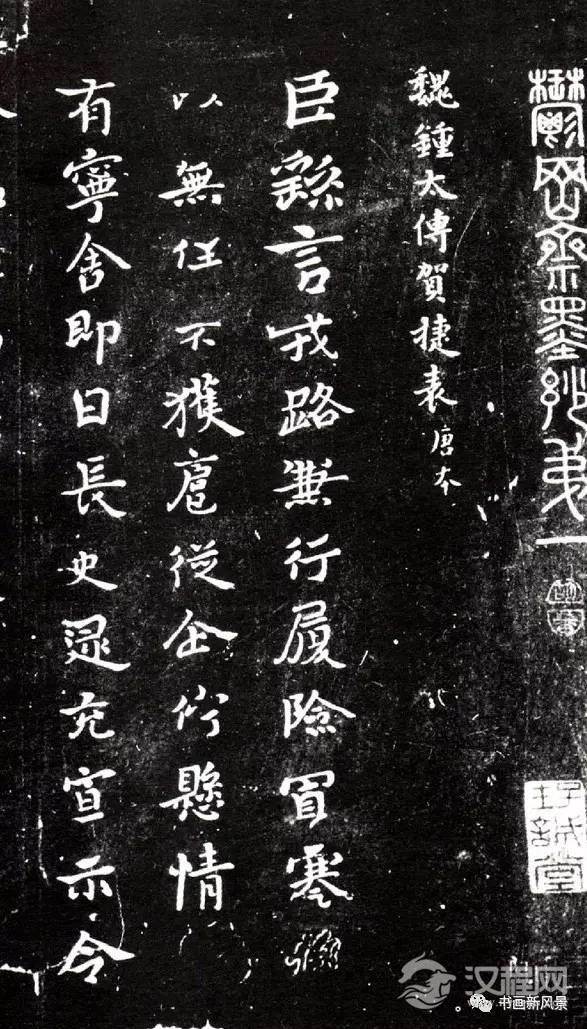 鬱岡齋墨玅弟一
魏鍾太傅賀捷表唐本
臣繇言戎路兼行履險冒寒
以無任不獲扈從企佇懸情
有寧舍即日長史逯充宣示令
汉程网
书画新风景